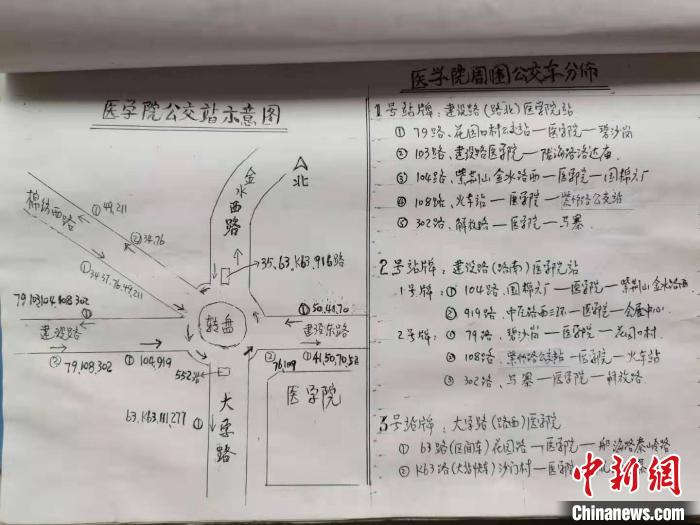 医学院公交站示意图
金水西路
北
棉纺西路
①49,211
②34,76
①34,37,76,49,211
35,63,K63,916路
79,103,104,108,302
建设路
转盘
①50,41,70
建设东路
②79,108,302
①104,919
②76,109
①41,50,70,52
552路
63,K63,111,277
①
大学路
医学院
医学院周围公交车分佈
1号站牌:建设路(路北)医学院站
①79路、花园口村公交站—医学院—碧沙岗
②103路、建设路医学院—陇海路洛达庙
③104路、紫荆山金水路西—医学院—国棉六厂
④108路、火车站—医学院—紫竹路公交站
⑤302路、解放路—医学院—马寨
2号站牌:建设路(路南)医学院站
1号牌:①104路、国棉六厂—医学院—紫荆山金水路西
②919路、中原路西三环—医学院—会展中心
2号牌:①79路、碧沙岗—医学院—花园口村
②108路、紫竹路公交站—医学院—火车站
③302路、马寨—医学院—解放路
3号站牌:大学路(路西)医学院
①63路(区间车)花园路—医学院—航海路秦岭路
②K63路(大站快车)沙门村—医学院
中新网
Chinanews.com